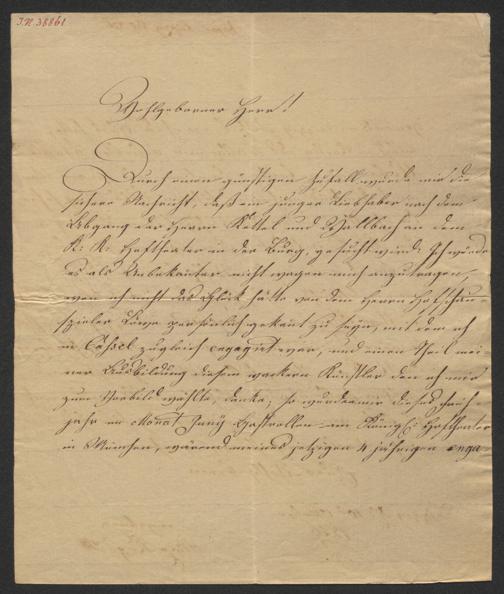 I.N. 38861
Wohlgeborner Herr!
Durch einen günstigen Zufall wurde mir die
sichere Nachricht, daß ein junger Liebhaber nach dem
Abgang der Herrn Kettel und Wallbach an dem
K: K: Hoftheater in der Burg, gesucht wird. Ich würde
es als Unbekanter nicht wagen mich anzutragen,
wen ich nicht das Glück hätte von dem Herrn Hofschau-
spieler Löwe persönlich gekant zu seyn, mit dem ich
in Cassel zugleich engagirt war, und einen Theil mei
ner Ausbildung diesem wackern Künstler den ich mir
zum Vorbild wählte, danke; so wurden mir dieses Früh-
jahr im Monat Juny Gastrollen am Königl: Hoftheater
in München, wärend meines jetzigen 4 jährigen enga-